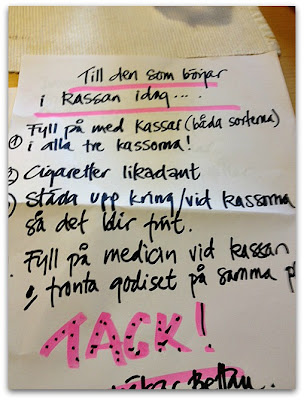 Till den som börjar
i kassan idag....
① Fyll på med kassar (båda sorterna)
i alla tre kassorna!
Cigaretter likadant
Städa upp kring/vid kassorna
så det blir fint.
Fyll på medicin vid kassan
& fronta godiset på samma
TACK!
Bettan